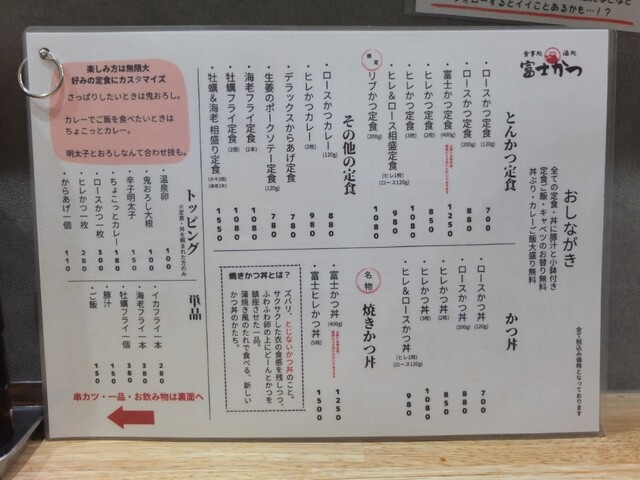 フォローするとイイことあるかも…！？
食事処 酒処
富士かつ
おしながき
全ての定食・丼に豚汁と小鉢付き
定食ご飯・キャベツのお替り無料
丼ぶり・カレーご飯大盛り無料
全て税込み価格となっております
とんかつ定食
・ロースかつ定食(120g) 700
・ロースかつ定食(200g) 880
・富士かつ定食(400g) 1250
・ヒレかつ定食(2枚) 850
・ヒレかつ定食(3枚) 1080
・ヒレ＆ロース相盛定食(ヒレ1枚)(ロース120g) 980
限定
・リブかつ定食(200g) 1080
その他の定食
・ロースかつカレー(120g) 880
・ヒレかつカレー(2枚) 980
・デラックスからあげ定食 780
・生姜のポークソテー定食(120g) 780
・海老フライ定食(2本) 1080
・牡蠣フライ定食(2個) 1080
・牡蠣＆海老 相盛り定食(カキ2個)(海老2本) 1550
かつ丼
・ロースかつ丼(120g) 700
・ロースかつ丼(200g) 880
・ヒレかつ丼(2枚) 850
・ヒレかつ丼(3枚) 1080
・ヒレ＆ロースかつ丼(ヒレ1枚)(ロース120g) 980
名物
焼きかつ丼
・富士かつ丼(400g) 1250
・富士ヒレかつ丼(5枚) 1500
焼きかつ丼とは？
ズバリ、とじないかつ丼のこと。
サクサクした衣の食感を残しつつ、
ふわふわ卵の上にどーんとかつを
鎮座させた一品。
蒲焼き風のたれで食べる、新しい
かつ丼のかたち。
楽しみ方は無限大
好みの定食にカスタマイズ
さっぱりしたいときは鬼おろし。
カレーでご飯を食べたいときは
ちょこっとカレー。
明太子とおろしなんて合わせ技も。
トッピング
※定食・丼を頼まれた方のみ
・温泉卵 100
・鬼おろし大根 100
・辛子明太子 150
・ちょこっとカレー 180
・ロースかつ一枚 300
・ヒレかつ一枚 280
・からあげ一個 110
単品
・イカフライ一本 280
・海老フライ一本 380
・牡蠣フライ一個 380
・豚汁 150
・ご飯 150
串カツ・一品・お飲み物は裏面へ